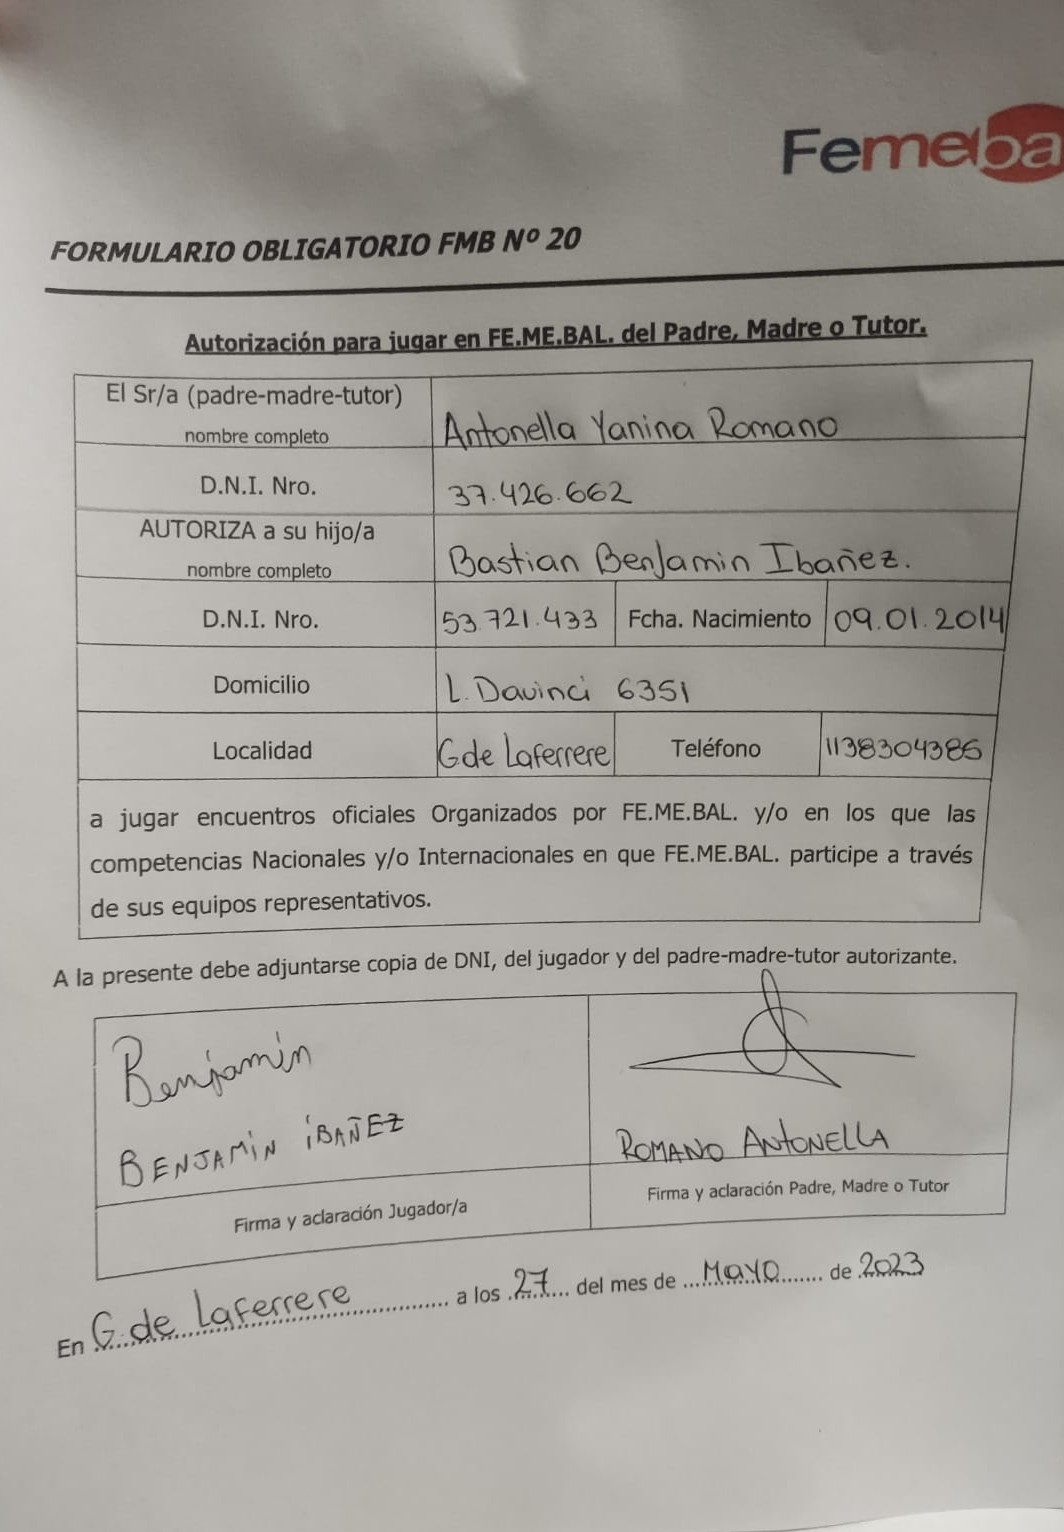 Femeba
FORMULARIO OBLIGATORIO FMB Nº 20
Autorización para jugar en FE.ME.BAL. del Padre, Madre o Tutor.
El Sr/a (padre-madre-tutor)
nombre completo
Antonella Yanina Romano
D.N.I. Nro.
37.426.662
AUTORIZA a su hijo/a
nombre completo
Bastian Benjamin Ibañez.
D.N.I. Nro.
53.721.433
Fcha. Nacimiento
09.01.2014
Domicilio
L. Davinci 6351
Localidad
G.de Laferrere
Teléfono
1138304385
a jugar encuentros oficiales Organizados por FE.ME.BAL. y/o en los que las
competencias Nacionales y/o Internacionales en que FE.ME.BAL. participe a través
de sus equipos representativos.
A la presente debe adjuntarse copia de DNI, del jugador y del padre-madre-tutor autorizante.
Benjamin
BENJAMIN IBAÑEZ
ROMANO ANTONELLA
Firma y aclaración Jugador/a
Firma y aclaración Padre, Madre o Tutor
En G. de Laferrere a los 27 del mes de Mayo de 2023